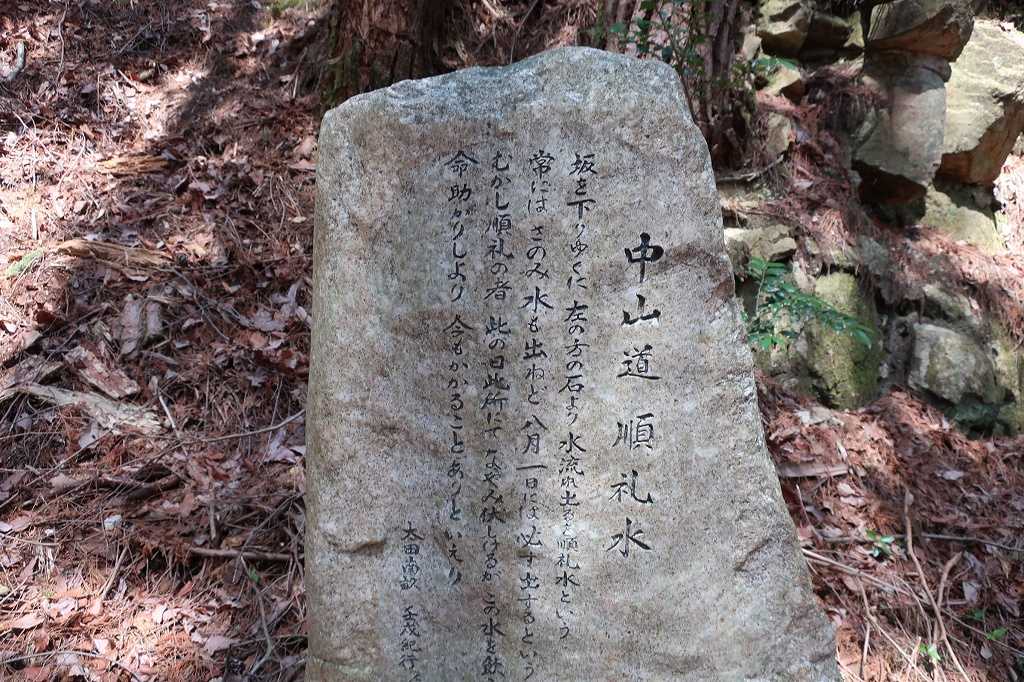 中山道 順礼水
坂を下りゆくに 左の方の石より 水流れ出るを順礼水という
常には さのみ水も出ねど 八月一日には必ず出するという
むかし順礼の者 此の日此所にて なやみ伏しけるが この水を飲
命助かりしより 今もかかることありといえり
太田南畝 壬戌紀行